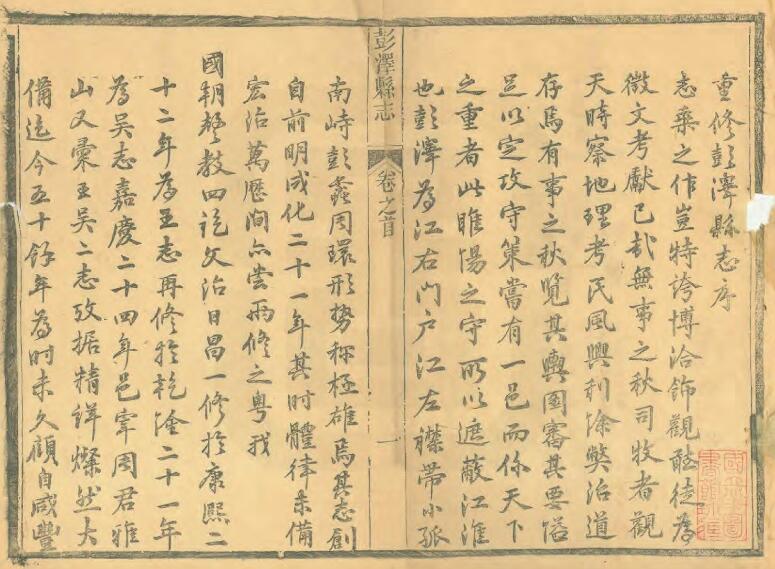 重修彭澤縣志序
志乘之作豈特誇博洽飾觀聽徒為
微文考獻已哉無事之秋司牧者觀
天時察地理考民風興利除弊治道
存焉有事之秋覽其輿圖審其要隘
足以定攻守策嘗有一邑而係天下
之重者此睢陽之守所以遮蔽江淮
也彭澤為江右門戶江左襟帶小孤
彭澤縣志
卷之首
一
南峙彭蠡周環形勢稱極雄焉其志創
自前明成化二十一年其時體律未備
宏治萬歷間亦嘗兩修之粵我
國朝聲教四訖文治日昌一修於康熙二
十二年為王志再修於乾隆二十一年
為吳志嘉慶二十四年邑宰周君雅
山又彙王吳二志攷据精詳燦然大
備迄今五十餘年為時未久顧自咸豐